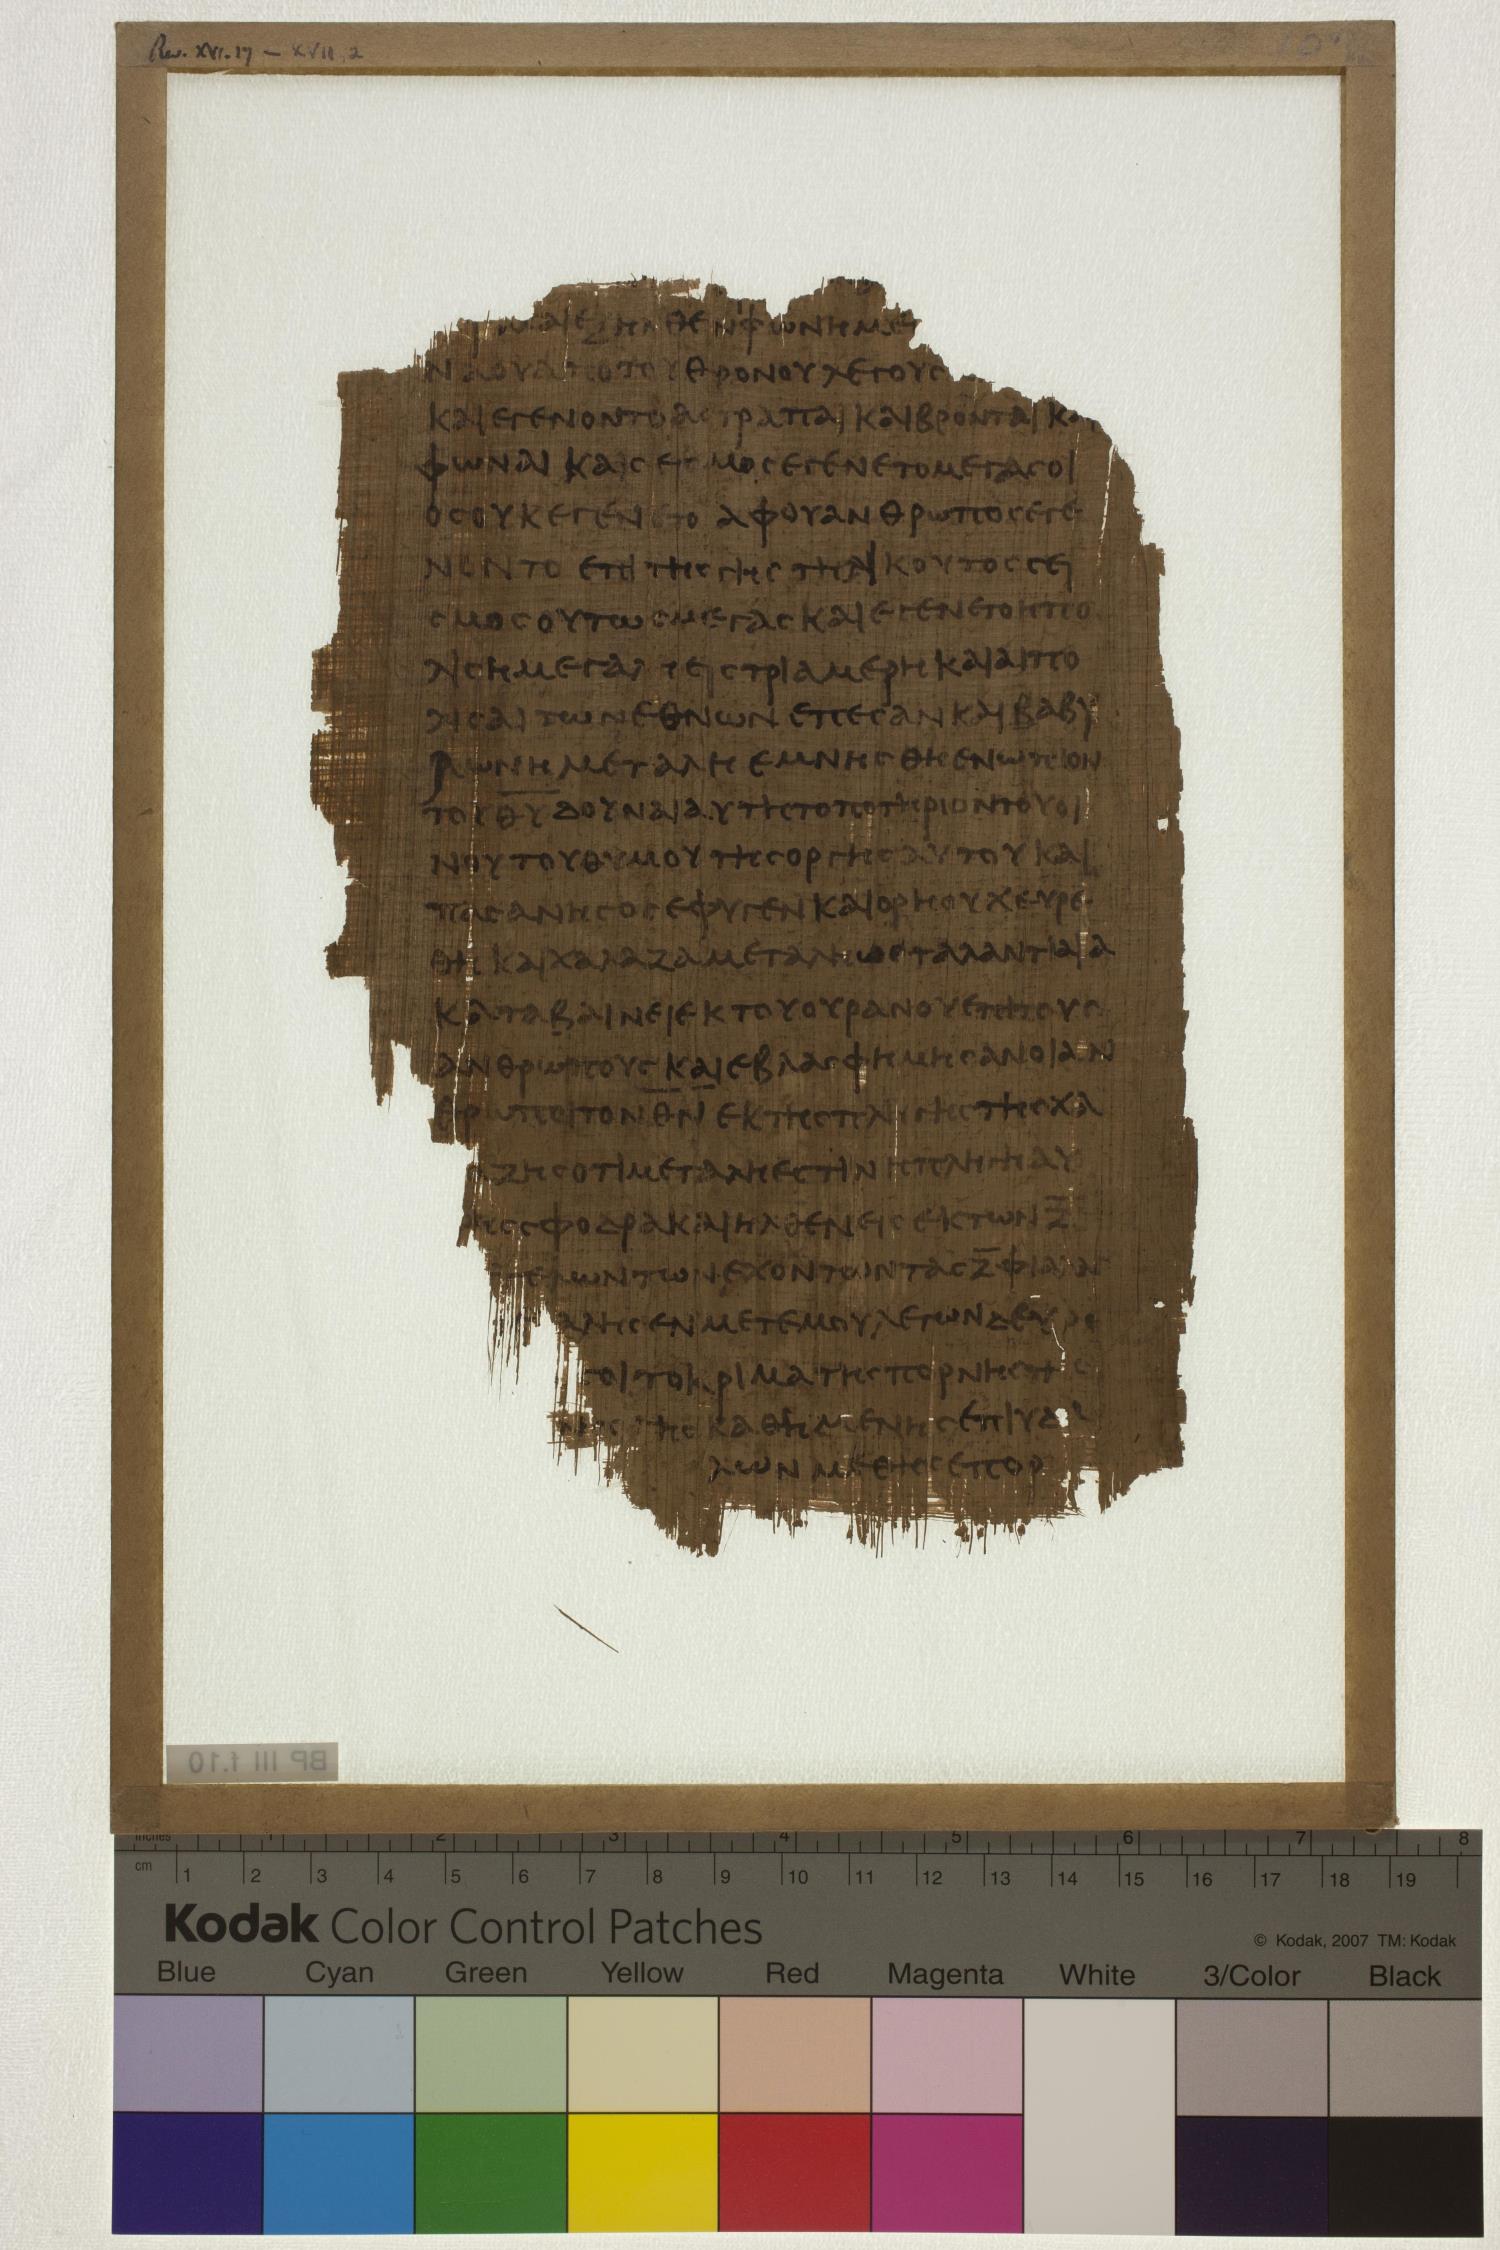 Rev. XVI.17 — XVII, 2
ΕΞΗΛΘΕΝΦΩΝΗΜΕΓ
ΝΑΟΥΑΠΟΤΟΥΘΡΟΝΟΥΛΕΓΟΥΣ
ΚΑΙΕΓΕΝΟΝΤΟΑΣΤΡΑΠΑΙΚΑΙΒΡΟΝΤΑΙΚΑΙ
ΦΩΝΑΙΚΑΙΣΕΙΣΜΟΣΕΓΕΝΕΤΟΜΕΓΑΣΟΙ
ΟΣΟΥΚΕΓΕΝΕΤΟΑΦΟΥΑΝΘΡΩΠΟΣΕΓΕ
ΝΟΝΤΟΕΠΙΤΗΣΓΗΣΤΗΛΙΚΟΥΤΟΣΣΕΙ
ΣΜΟΣΟΥΤΩΣΜΕΓΑΣΚΑΙΕΓΕΝΕΤΟΗΠΟ
ΛΙΣΗΜΕΓΑΛΗΕΙΣΤΡΙΑΜΕΡΗΚΑΙΑΙΠΟ
ΛΙΣΑΙΤΩΝΕΘΝΩΝΕΠΕΣΑΝΚΑΙΒΑΒΥ
ΛΩΝΗΜΕΓΑΛΗΕΜΝΗΣΘΗΕΝΩΠΙΟΝ
ΤΟΥΘ̅Υ̅ΔΟΥΝΑΙΑΥΤΗΣΤΟΠΟΤΗΡΙΟΝΤΟΥΟΙ
ΝΟΥΤΟΥΘΥΜΟΥΤΗΣΟΡΓΗΣΑΥΤΟΥΚΑΙ
ΠΑΣΑΝΗΣΟΣΕΦΥΓΕΝΚΑΙΟΡΗΟΥΧΕΥΡΕ
ΘΗΚΑΙΧΑΛΑΖΑΜΕΓΑΛΗΩΣΤΑΛΑΝΤΙΑΙΑ
ΚΑΤΑΒΑΙΝΕΙΕΚΤΟΥΟΥΡΑΝΟΥΕΠΙΤΟΥΣ
ΑΝΘΡΩΠΟΥΣΚΑΙΕΒΛΑΣΦΗΜΗΣΑΝΟΙΑΝ
ΘΡΩΠΟΙΤΟΝΘ̅Ν̅ΕΚΤΗΣΠΛΗΓΗΣΤΗΣΧΑ
ΑΖΗΣΟΤΙΜΕΓΑΛΗΕΣΤΙΝΗΠΛΗΓΗΑΥ
ΗΣΣΦΟΔΡΑΚΑΙΗΛΘΕΝΕΙΣΕΚΤΩΝΖ̅
ΓΕΛΩΝΤΩΝΕΧΟΝΤΩΝΤΑΣΖ̅ΦΙΑΛΑΣ
ΑΛΗΣΕΝΜΕΤΕΜΟΥΛΕΓΩΝΔΕΥΡΟ
ΣΟΙΤΟΚΡΙΜΑΤΗΣΠΟΡΝΗΣΤΗΣ
ΗΣΤΗΣΚΑΘΗΜΕΝΗΣΕΠΙΥΔΑ
ΛΩΝΜΕΘΗΣΕΠΟΡ
BP III f.10
inches 1 2 3 4 5 6 7 8
cm 1 2 3 4 5 6 7 8 9 10 11 12 13 14 15 16 17 18 19
Kodak Color Control Patches
© Kodak, 2007 TM: Kodak
Blue Cyan Green Yellow Red Magenta White 3/Color Black